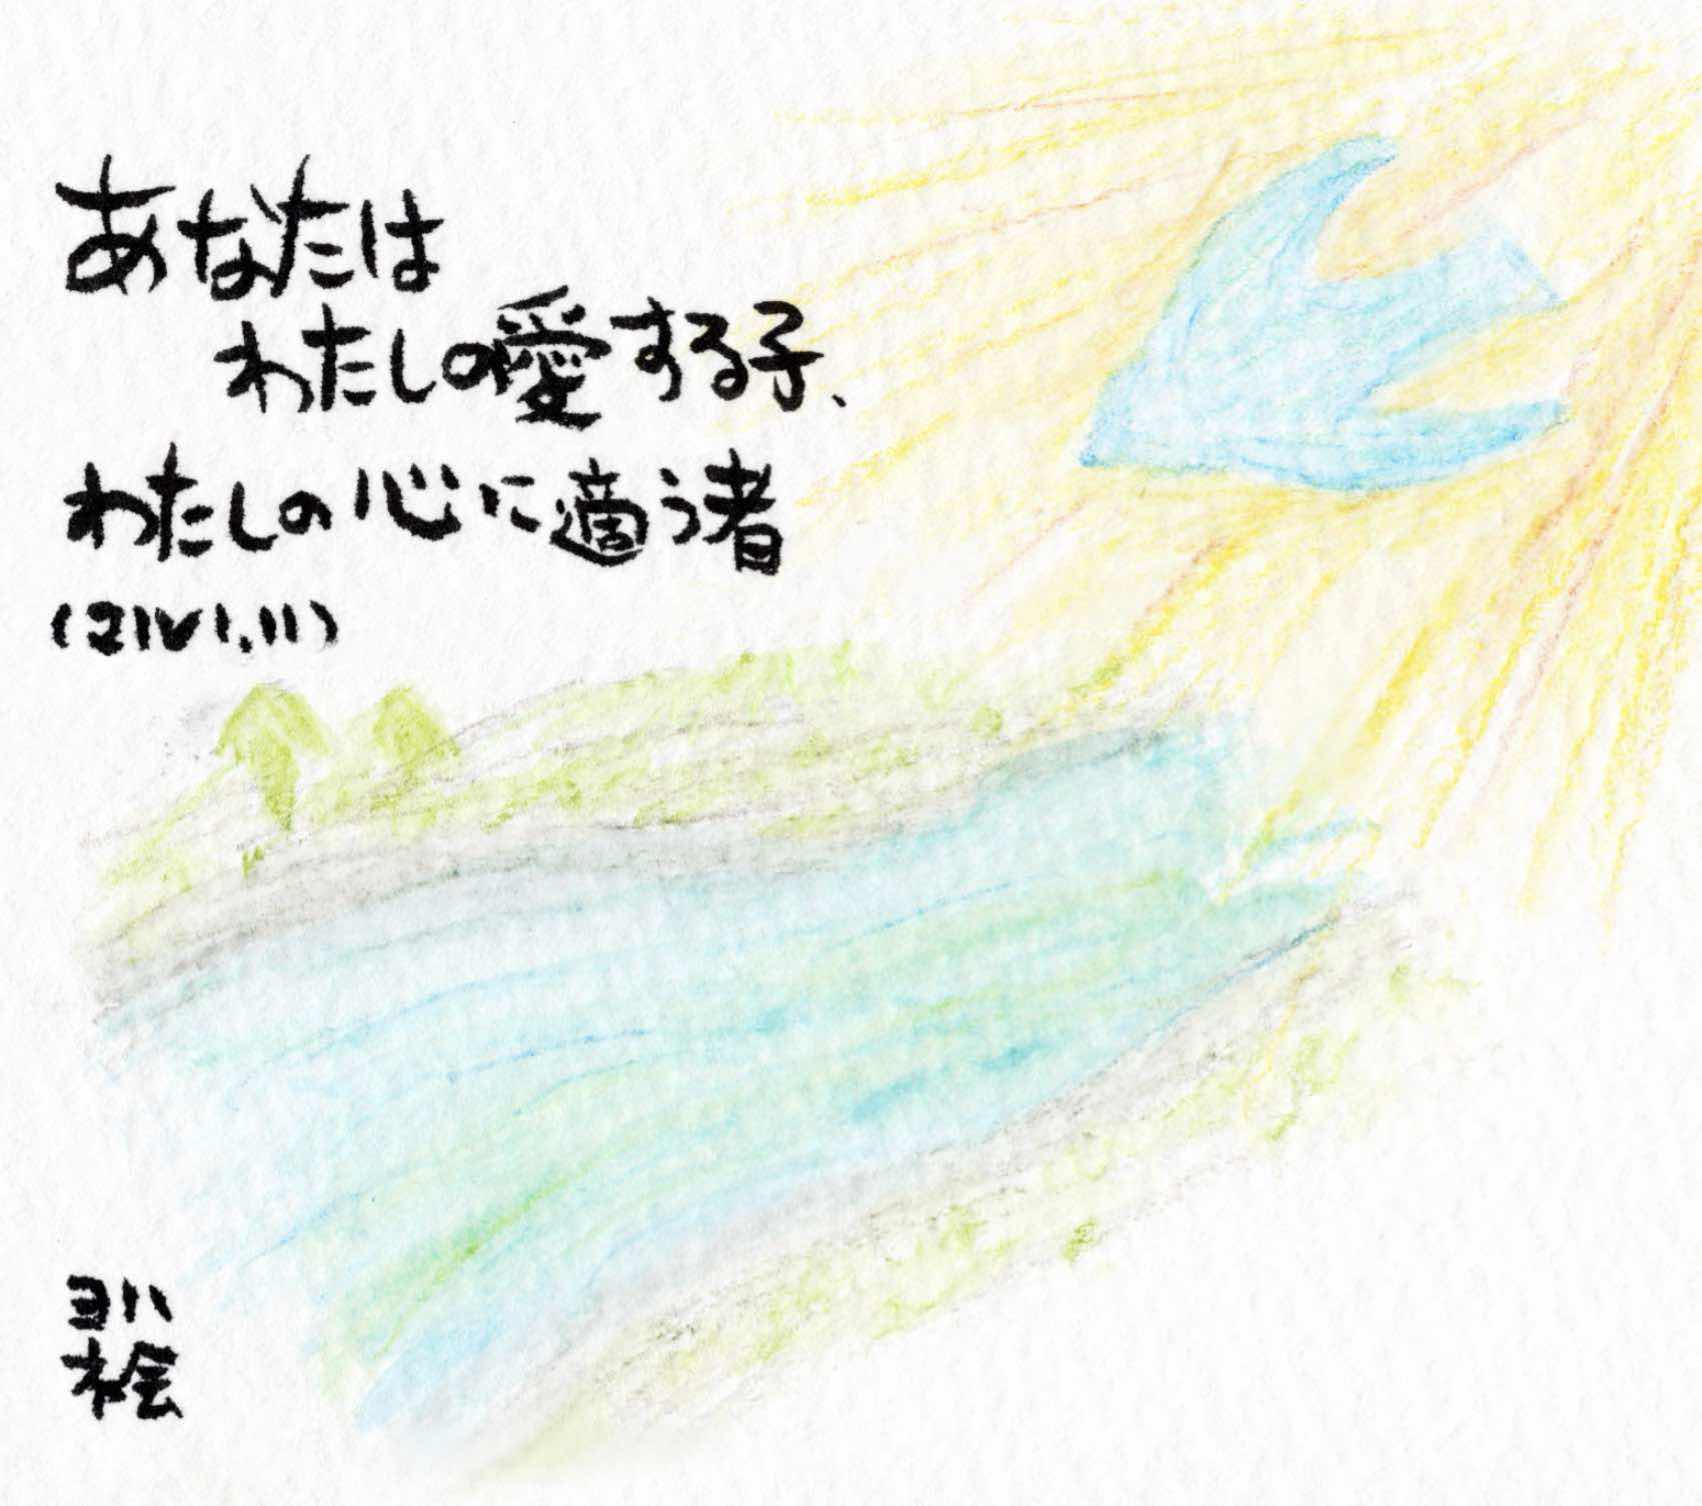 あなたは
わたしの愛する子、
わたしの心に適う者
(マルコ1.11)
ヨハ
ネ会